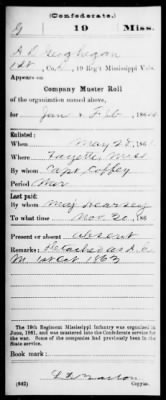 (Confederate.)
G 19 Miss.
1st Co. 19 Reg't Mississippi Vols.
Appears on
Company Muster Roll
of the organization named above,
for Jan & Feb, 186
Enlisted:
When May 28, 186
Where Fayette Miss
By whom Capt. Coffey
Period War
Last paid:
By whom Maj Hearsey
To what time Nov. 20, 186
Present or absent Absent
Remarks: Detached as A.C.
M. 1st Oct. 1863
The 19th Regiment Mississippi Infantry was organized in
June, 1861, and was mustered into the Confederate service for
the war. Some of the companies had previously been in the
State service.
Book mark:
(642) Copyist.